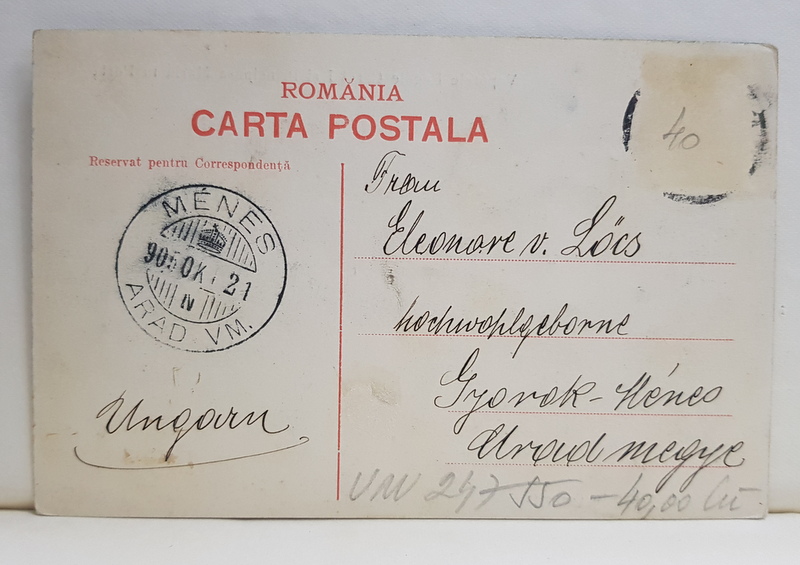 ROMĂNIA
CARTA POSTALA
Reservat pentru Corespondență
40
MÉNES
905 OKT 21
IV
ARAD VM.
Frau
Eleonore v. Lőcs
hochwohlgeborne
Gyorok-Ménes
Arad megye
Ungarn
247 550 - 40,00